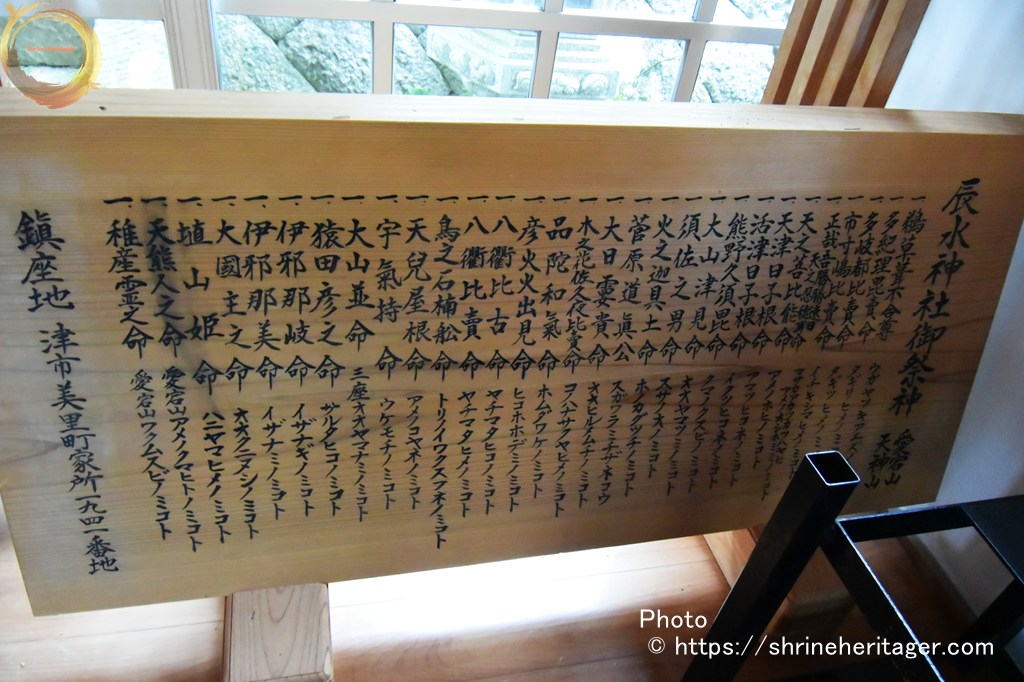 辰水神社御祭神 愛宕山 天神山
一、鵜草葺不合尊
一、多紀理毘賣命 タギリ ヒメノミコト
一、多岐都比賣命 タギツ ヒメノミコト
一、市寸嶋比賣命 イチキシマヒメノミコト
一、正哉吾勝勝速日天之忍穂耳命
一、天之菩比能命 アメノホヒノミコト
一、天津日子根命 アマツヒコネノミコト
一、活津日子根命 イクツヒコネノミコト
一、熊野久須毘命 クマノクスビノミコト
一、大山津見命 オオヤマツミノミコト
一、須佐之男命 スサノオノミコト
一、火之迦具土命 ホノカグツチノミコト
一、菅原道真公 スガワラミチザネコウ
一、大日孁貴命 オオヒルメムチノミコト
一、木之花佐久夜比賣命 コノハナサクヤヒメノミコト
一、品陀和氣命 ホムダワケノミコト
一、彦火火出見命 ヒコホホデミノミコト
一、八衢比古命 ヤチマタヒコノミコト
一、八衢比賣命 ヤチマタヒメノミコト
一、鳥之石楠舩命 トリノイワクスフネノミコト
一、天兒屋根命 アメノコヤネノミコト
一、宇氣持命 ウケモチノミコト
一、大山並命 三座オオヤマナミノミコト
一、猿田彦之命 サルタヒコノミコト
一、伊邪那岐命 イザナギノミコト
一、伊邪那美命 イザナミノミコト
一、大國主之命 オオクニヌシノミコト
一、埴山姫命 ハニヤマヒメノミコト
一、天熊人之命 愛宕山アメノクマヒトノミコト
一、稚産霊之命 愛宕山ワクムスビノミコト
鎮座地 津市美里町家所一九四一番地
Photo
© https://shrineheritager.com